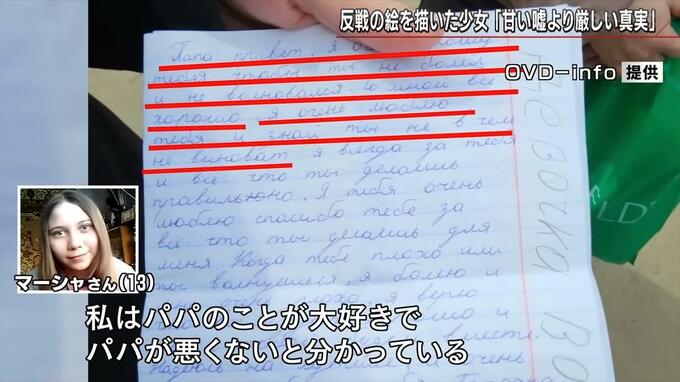 反戦の絵を描いた少女「甘い嘘より厳しい真実」
OVD-info 提供
Папа привет. Я
тебя чтобы ты не болел
и не волновался. Со мной все
хорошо, я очень люблю
тебя и знай ты не в чем
не виноват я всегда за тебя
и всё что ты делаешь
правильно. Я тебя очень
люблю спасибо тебе за
всё что ты делаешь для
меня. Когда тебе плохо или
ты волнуешься, я болею и
очень плохо я верю
и
вместе.
очень
девочка
マーシャさん(13)
私はパパのことが大好きで
パパが悪くないと分かっている